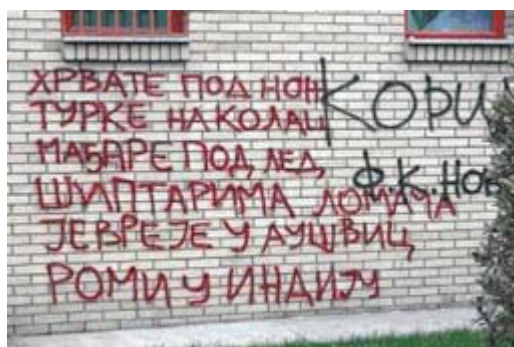 ХРВАТЕ ПОД НОЖ
ТУРКЕ НА КОЛАЦ
МАЂАРЕ ПОД ЛЕД
Ф.К.НОВ
ШИПТАРИМА ЛОМАЧА
ЈЕВРЕЈЕ У АУШВИЦ
РОМИ У ИНДИЈУ